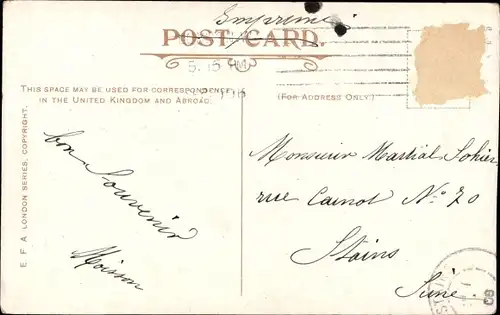 Imprimé
POST CARD.
5.15 PM
THIS SPACE MAY BE USED FOR CORRESPONDENCE
IN THE UNITED KINGDOM AND ABROAD.
(FOR ADDRESS ONLY.)
E F A LONDON SERIES, COPYRIGHT.
bon Souvenir
Moisson
Monsieur Martial Sohier
rue Carnot No 70
Stains
Seine.